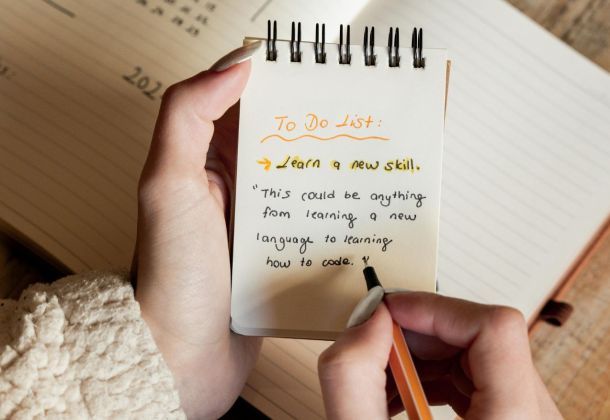 202
To Do List:
→ Learn a new skill.
"This could be anything
from learning a new
language to learning
how to code."